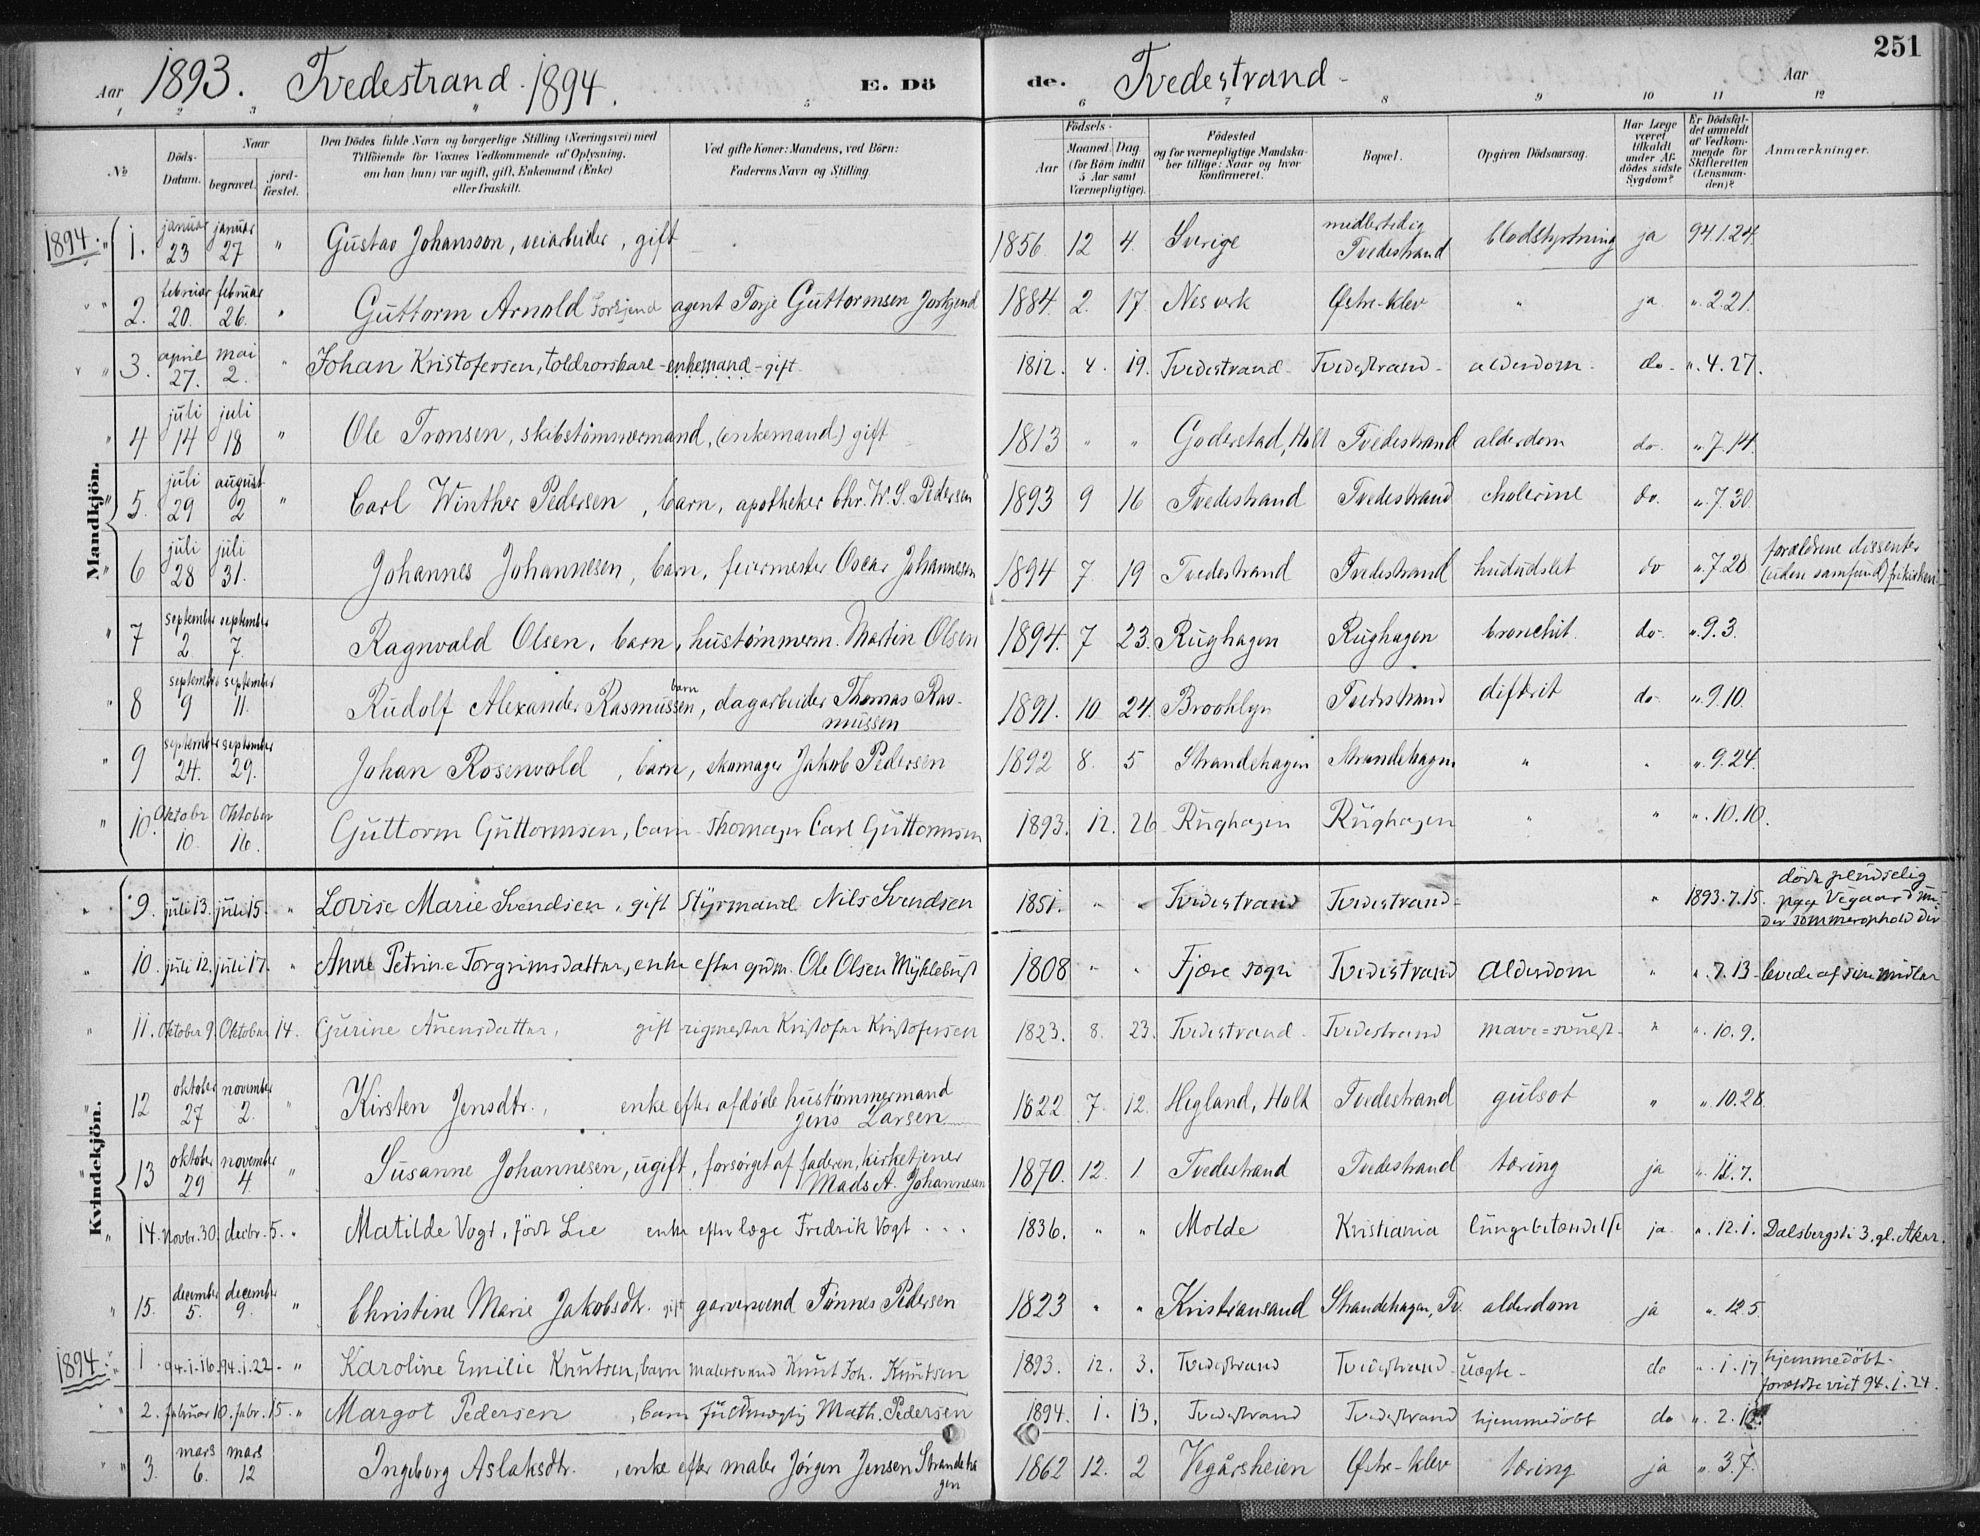 Aar 1893. Tvedestrand. 1894. E. Dö de. Tvedestrand - Aar 251
1 2 3 5 6 7 8 9 10 11 12
No Döds-Datum. Naar begravet. jordfæstet. Den Dödes fulde Navn og borgerlige Stilling (Næringsvei) med Tilföiende for Voxnes Vedkommende af Oplysning, om han (hun) var ugift, gift, Enkemand (Enke) eller fraskilt. Ved gifte Koner: Mandens, ved Börn: Faderens Navn og Stilling. Födsels- Aar Maaned. Dag (for Börn indtil 5 Aar samt Værnepligtige). Födested og for værnepligtige Mandskaber tillige: Naar og hvor konfirmeret. Bopæl. Opgiven Dödsaarsag. Har Læge været tilkaldt under Afdödes sidste Sygdom? Er Dödsfaldet anmeldt af Vedkommende for Skifteretten (Lensmanden)? Anmærkninger.
Mandkjön.
1894. 1. januar 23 januar 27 " Gustav Johansson, veiarbeider, gift 1856 12 4. Sverige midlertidig Tvedestrand blodstyrtning ja 94.1.24.
" 2. februar 20. februar 26. " Guttorm Arnold Forkjend agent Torje Guttormsen Jorkjend 1884. 2. 17. Nes verk Østre-klev " ja ". 2.21.
" 3. april 27. mai 2. " Johan Kristofersen, toldrorskare - enkemand - gift. 1812. 4. 19. Tvedestrand - Tvedestrand - alderdom. do - ". 4. 27.
" 4 juli 14 juli 18 " Ole Tronsen, skibstømmermand, (enkemand) gift 1813 " " Goderstad, Holt Tvedestrand alderdom do. ". 7. 14.
" 5. juli 29 august 2 " Carl Winther Pedersen, barn, apotheker Chr. W. S. Pedersen 1893 9 16 Tvedestrand Tvedestrand cholerine do. ". 7. 30.
" 6 juli 28 juli 31. Johannes Johannesen, barn, feiermester Oscar Johannesen 1894 7 19 Tvedestrand Tvedestrand hududslet do ". 7. 28 forældrene dissenter (uden samfund) frikirken.
" 7 september 2 september 7. Ragnvald Olsen, barn, hustømmerm. Martin Olsen 1894. 7 23. Rughagen Rughagen bronchit. do - ". 9. 3.
" 8 september 9 september 11. Rudolf Alexander Rasmussen, barn, dagarbeider Thomas Rasmussen 1891. 10 24. Brooklyn Tvedestrand difterit do - ". 9.10.
" 9 september 24. september 29. Johan Rosenvold, barn, skomager Jakob Pedersen 1892 8. 5 Strandehagen Strandehagen " " ". 9.24.
" 10. Oktober 10. Oktober 16. Guttorm Guttormsen, barn - skomager Carl Guttormsen 1893. 12. 26 Rughagen Rughagen " " ". 10. 10.
Kvindekjön.
" 9. juli 13. juli 15. " Lovise Marie Svendsen, gift Styrmand Nils Svendsen 1851. " " Tvedestrand Tvedestrand - " 1893.7.15. døde plendselig paa Vegaard under sommerophold der
" 10. juli 12. juli 17. " Anne Petrine Torgrimsdatter, enke efter grdm. Ole Olsen Myklebust 1808 " " Fjære sogn Tvedestrand Alderdom " ". 7. 13 - levede af sine midler
" 11. Oktober 9. Oktober 14. Gurine Auensdatter, gift rigmester Kristofer Kristofersen 1823. 8. 23. Tvedestrand - Tvedestrand mave=svulst - " ". 10. 9.
" 12 oktober 27 november 2. " Kirsten Jensdtr., enke efter afdøde hustømmermand Jens Larsen 1822. 7. 12. Hegland, Holt Tvedestrand gulsot " ". 10.28.
" 13 oktober 29 november 4. " Susanne Johannesen, ugift, forsørget af faderen, kirketjener Mads A. Johannesen 1870. 12. 1 Tvedestrand Tvedestrand tæring ja ". 11. 7.
" 14. Novbr. 30. decbr. 5. " Matilde Vogt, født Lie enke efter læge Fredrik Vogt . . . 1836. " " Molde Kristiania lungebetændelse ja ". 12. 1. Dalsbergsti 3. gl. Aker.
" 15. december 5. december 9. " Christine Marie Jakobsdtr. gift garversvend Tønnes Pedersen 1823 " " Kristiansand Strandehagen, Tv. alderdom ja ". 12. 5
1894. " 1. 94.1.16. 94.1.22 - " Karoline Emilie Knutsen, barn malersvend Knut Joh. Knutsen 1893. 12. 3. Tvedestrand Tvedestrand - uægte - do ". 1. 17. hjemmedøbt. forældre viet 94.1.24.
" 2. februar 10. febr. 15. " Margot Pedersen, barn fuldmægtig Math. Pedersen 1894. 1. 13. Tvedestrand Tvedestrand hjemmedøbt do ". 2. 12.
" 3. mars 6. mars 12 Ingeborg Aslaksdtr., enke efter maler Jørgen Jensen Strandehagen 1862 12. 2 Vegårsheien Østre-klev tæring ja ". 3. 7.